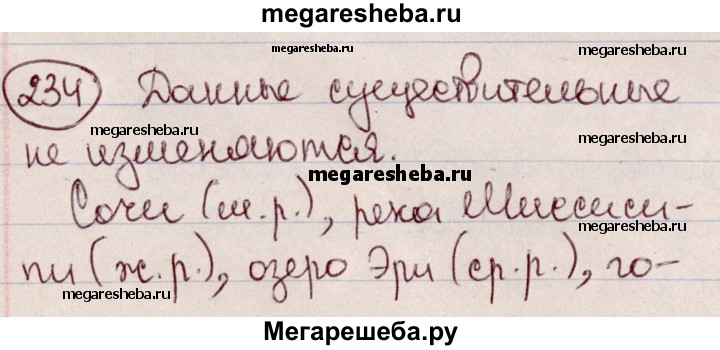 megaresheba.ru
megaresheba.ru
megaresheba.ru
234 Данные существительные
megaresheba.ru
не изменяются.
megaresheba.ru
Сочи (м.р.), река Миссиси-
megaresheba.ru
megaresheba.ru
пи (ж.р.), озеро Эри (ср.р.), го-
megaresheba.ru
megaresheba.ru
Мегарешеба.ру